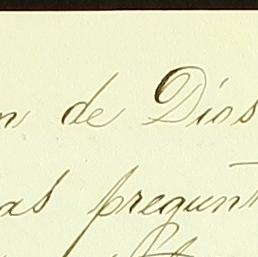 n de Dios
as pregunt